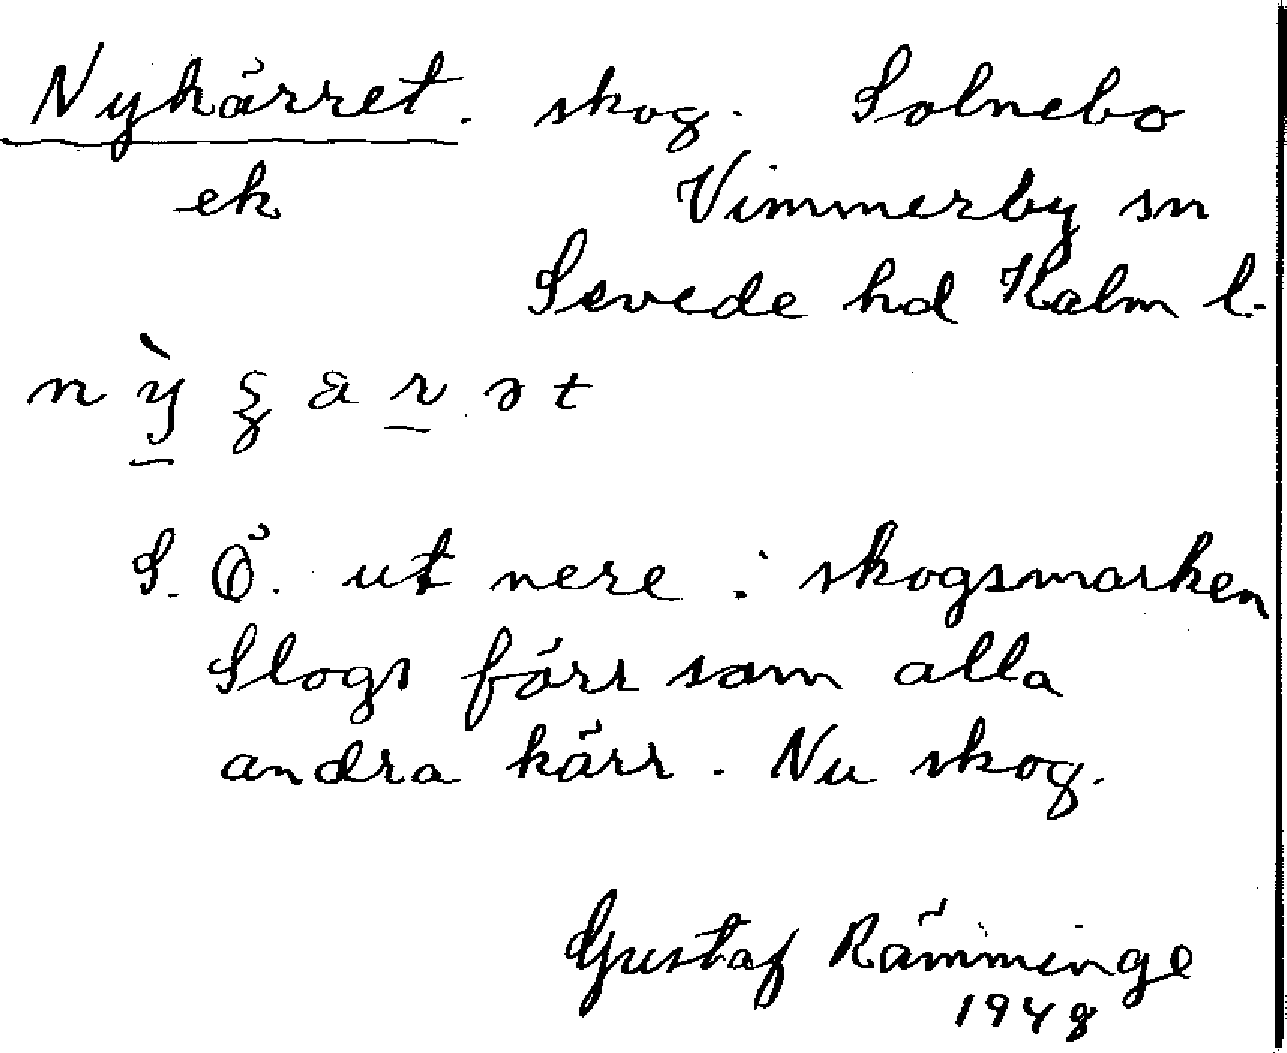 Nykärret. skog. Solnebo
ek Vimmerby sn
Sevede hd Kalm l.
n ỳ̠ ʒ a r̠ ə t
S. Ö. ut nere i skogsmarken
Slogs förr som alla
andra kärr. Nu skog.
Gustaf Rämminge
1948